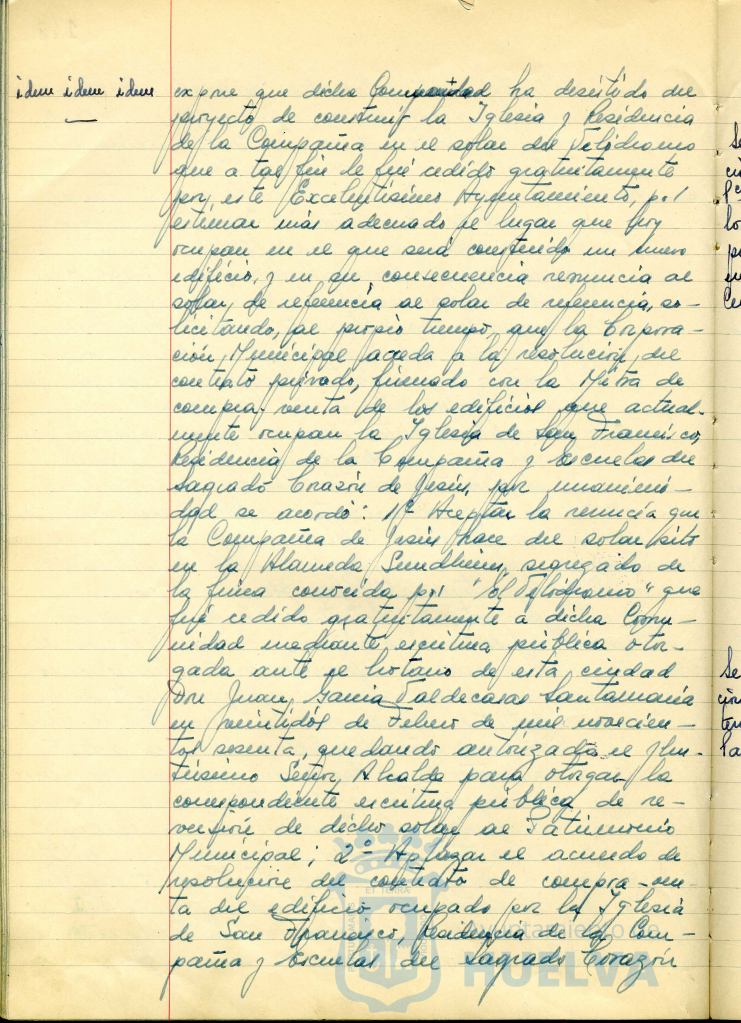 idem idem idem
expone que dicha Comunidad ha desistido del
proyecto de construir la Iglesia y Residencia
de la Compañía en el solar del Velódromo
que a tal fin le fué cedido gratuitamente
por este Excelentísimo Ayuntamiento, por
estimar más adecuado el lugar que hoy
ocupan en el que será construido un nuevo
edificio, y en su consecuencia renuncia al
solar de referencia al solar de referencia, so-
licitando, al propio tiempo, que la Corpora-
ción Municipal acceda a la resolución del
contrato privado, firmado con la Mitra de
compra-venta de los edificios que actual-
mente ocupan la Iglesia de San Francisco,
Residencia de la Compañía y Escuelas del
Sagrado Corazón de Jesús, por unanimi-
dad se acordó: 1º Aceptar la renuncia que
la Compañía de Jesús hace del solar sito
en la Alameda Sundheim, segregado de
la finca conocida por "el Velódromo" que
fué cedido gratuitamente a dicha Comu-
nidad mediante escritura pública otor-
gada ante el Notario de esta ciudad
Don Juan García Valdecasas Santamaría
en veintidós de Febrero de mil novecien-
tos sesenta, quedando autorizado el Ilus-
trísimo Señor Alcalde para otorgar la
correspondiente escritura pública de re-
versión de dicho solar al Patrimonio
Municipal; 2º Aplazar el acuerdo de
resolución del contrato de compra-ven-
ta del edificio ocupado por la Iglesia
de San Francisco, Residencia de la Com-
pañía y Escuelas del Sagrado Corazón
Ayuntamiento de
HUELVA